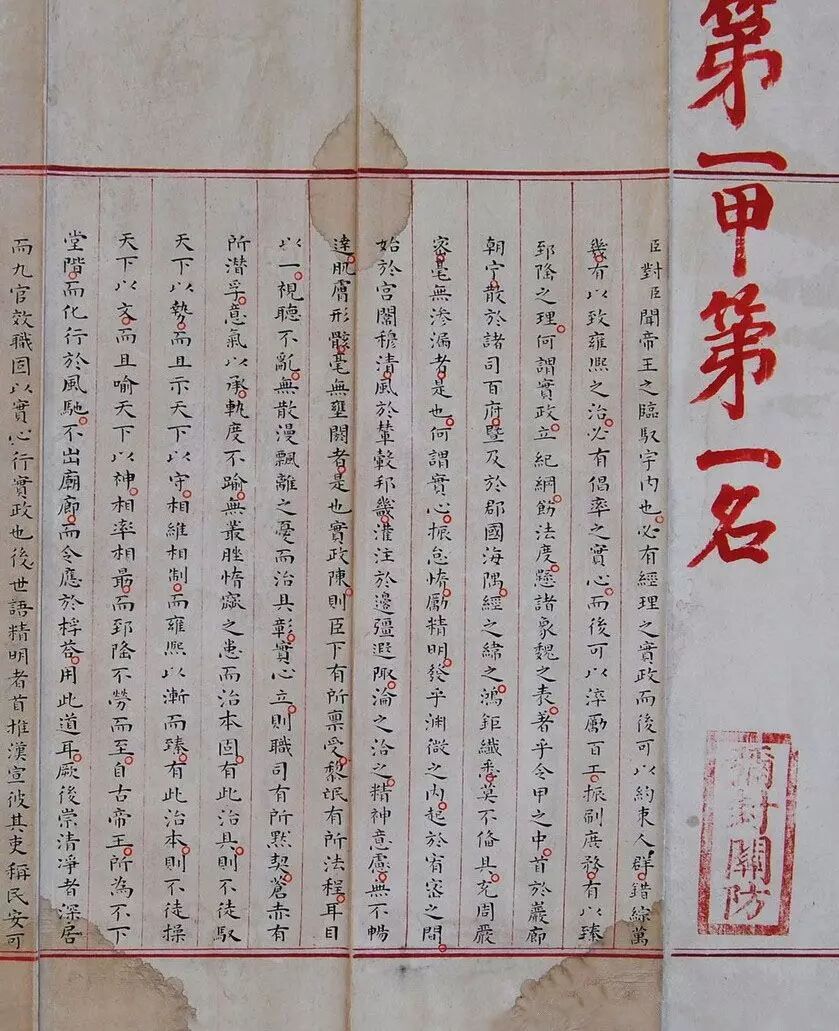 第一甲第一名
彌封關防
臣對臣聞帝王之臨馭宇內也必有經理之實政而後可以約束人群錯綜萬
幾有以致雍熙之治必有倡率之實心而後可以淬勵百工振刷庶務有以臻
郅隆之理何謂實政立紀綱飭法度懸諸象魏之表著乎令甲之中首於巖廊
朝宁散於諸司百府暨及於郡國海隅經之緯之鴻鉅纖悉莫不俻具充周嚴
密毫無滲漏者是也何謂實心振怠惰勵精明發乎淵微之內起於宥密之間
始於宮闈穆清風於輦轂邦畿灌注於邊疆遐陬淪之洽之精神意慮無不暢
達肌膚形骸毫無壅閼者是也實政陳則臣下有所稟受黎氓有所法程耳目
以一視聽不亂無散漫飄離之憂而治具彰實心立則職司有所默契蒼赤有
所潛孚意氣以承軌度不踰無叢脞惰窳之患而治本固有此治具則不徒馭
天下以勢而且示天下以守相維相制而雍熙以漸而臻有此治本則不徒操
天下以文而且喻天下以神相率相最而郅隆不勞而至自古帝王所為不下
堂階而化行於風馳不出廟廊而令應於桴荅用此道耳厥後崇清凈者深居
而九官效職固以實心行實政也後世語精明者首推漢宣彼其吏稱民安可